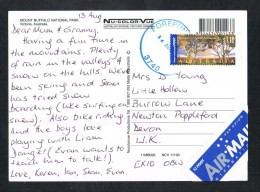 MOUNT BUFFALO NATIONAL PARK
Victoria, Australia
13 Aug
NU-COLOR-VUE
Dear Mum & Granny,
Having a fun time in
the mountains. Plenty
of rain in the valleys &
snow on the hills. We've
been skiing and Sean
has tried snow
boarding (like surfing on
snow). Also bike riding
and the boys love
playing with Liam
(Evan wants to
teach him to talk!).
Love, Karen, Ian, Sean, Evan
Mrs D Young
Little Hollow
Burrow Lane
Newton Poppleford
Devon
U.K.
EX10 0BW
3740
AIR MAIL